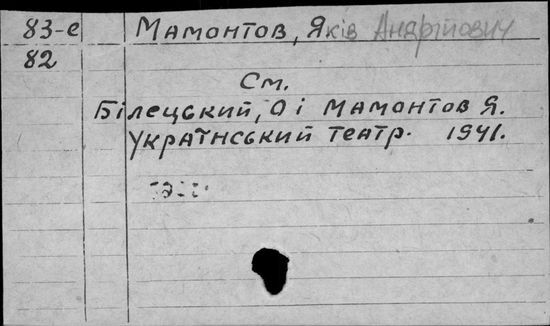 83-е Мамонтов, Яків Андрійович
82
См.
Білецький, О і Мамонтов Я.
Український театр. 1941.